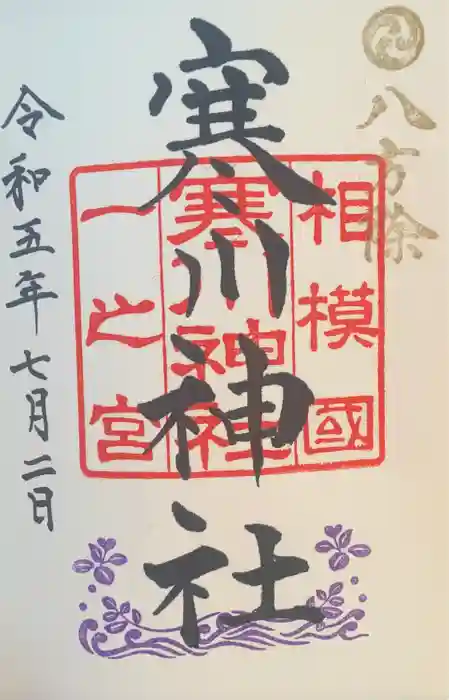 八方除
相模國
寒川神社
一之宮
寒川神社
令和五年七月二日